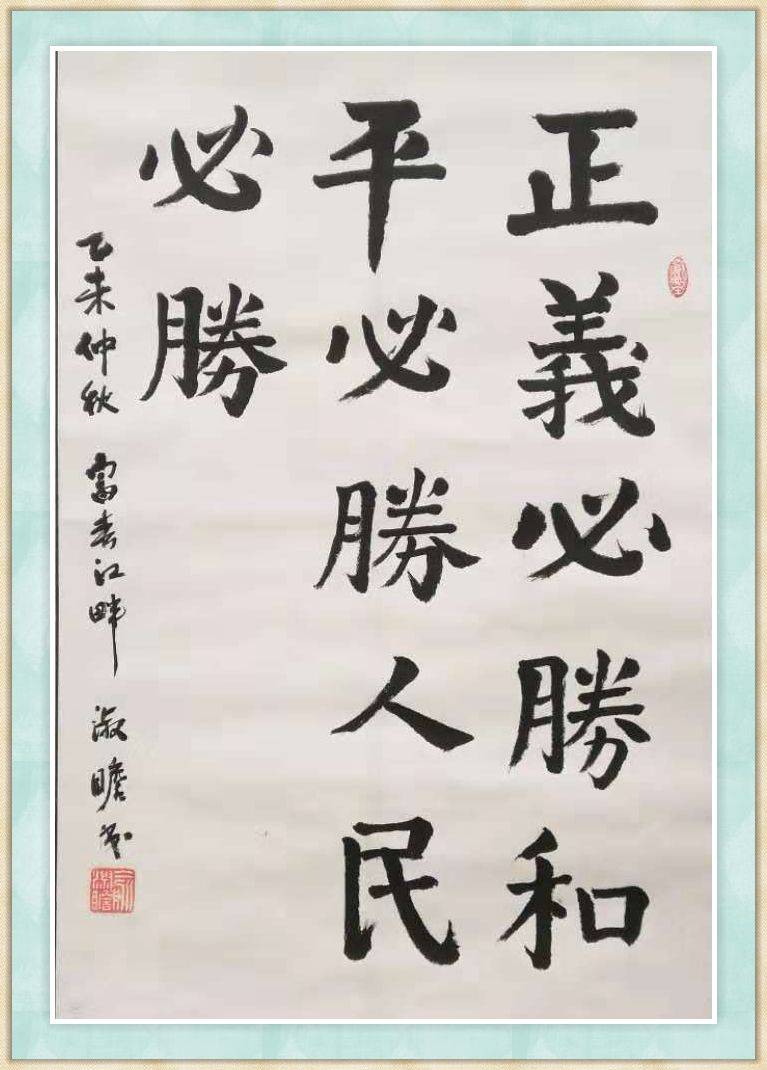 正義必勝和
平必勝人民
必勝
乙未仲秋 富春江畔 淑瞻書